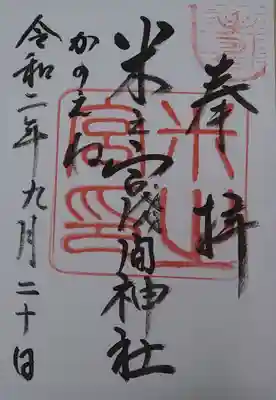 奉拝
米之宮浅間神社
かのえね
令和二年九月二十日
米之宮印